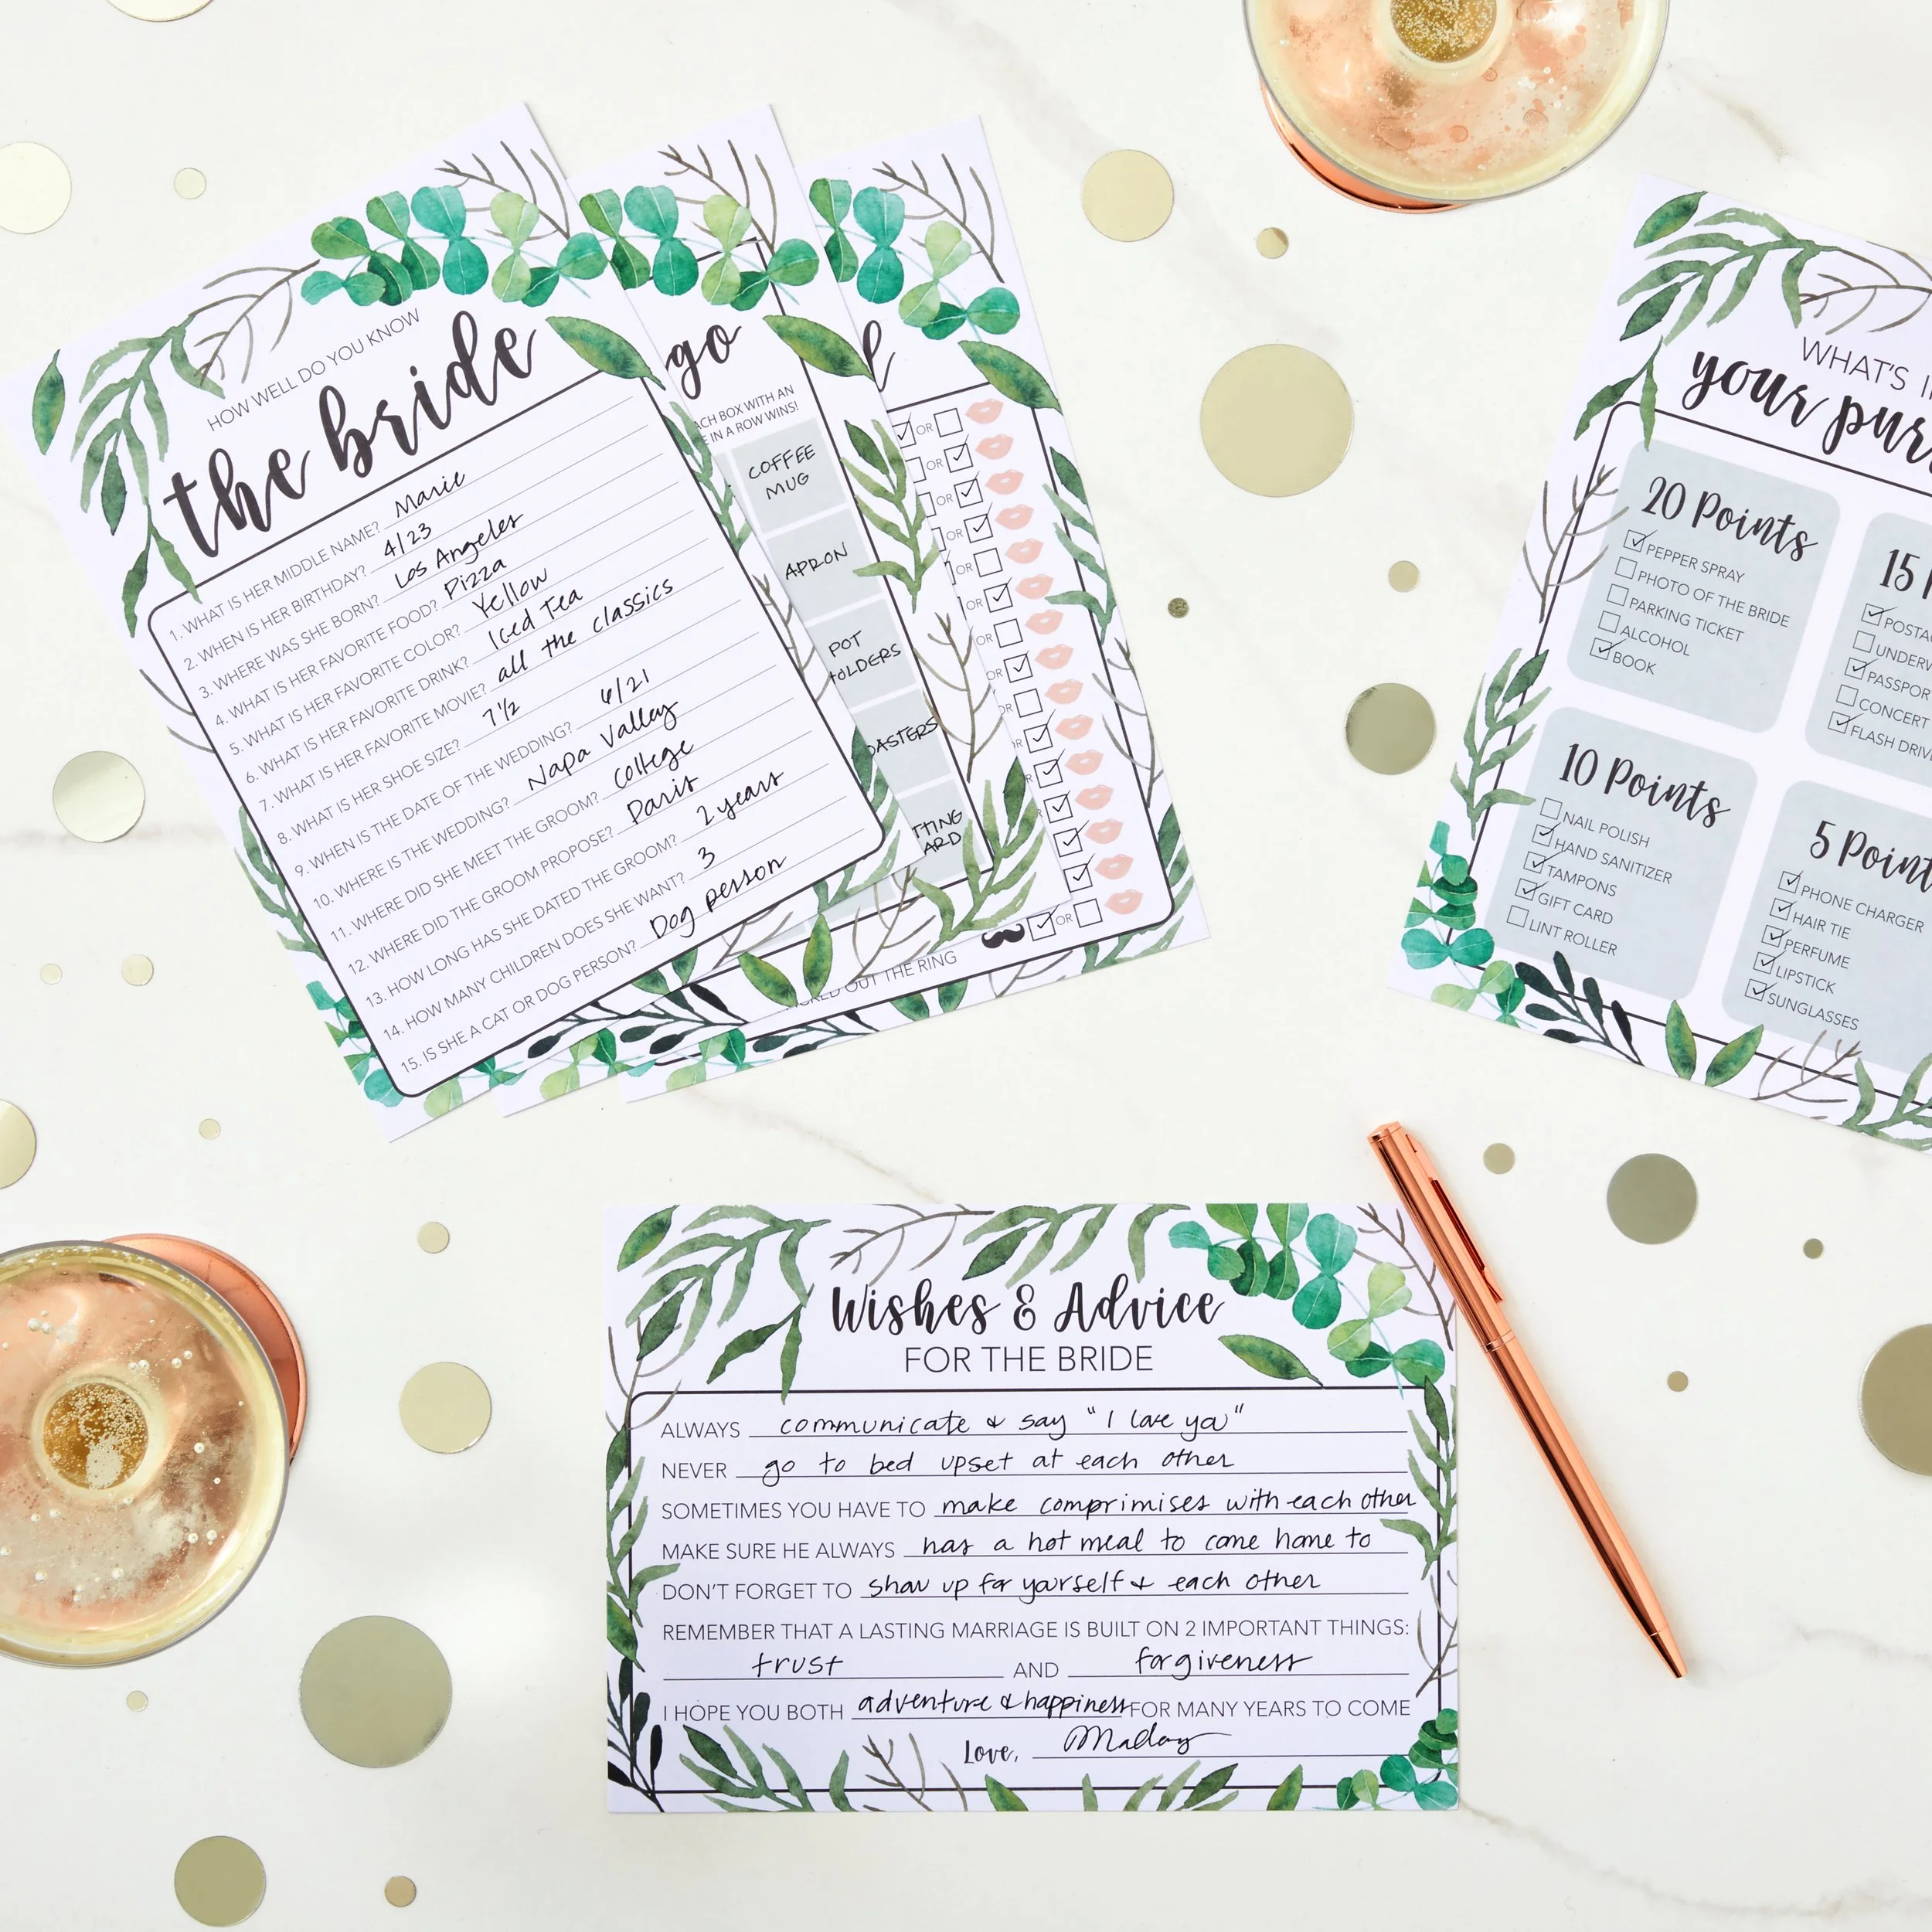 HOW WELL DO YOU KNOW
the bride
1. WHAT IS HER MIDDLE NAME? Marie
2. WHEN IS HER BIRTHDAY? 4/23
3. WHERE WAS SHE BORN? Los Angeles
4. WHAT IS HER FAVORITE FOOD? Pizza
5. WHAT IS HER FAVORITE COLOR? Yellow
6. WHAT IS HER FAVORITE DRINK? Iced Tea
7. WHAT IS HER FAVORITE MOVIE? all the classics
8. WHAT IS HER SHOE SIZE? 7 1/2
9. WHEN IS THE DATE OF THE WEDDING? 6/21
10. WHERE IS THE WEDDING? Napa Valley
11. WHERE DID SHE MEET THE GROOM? College
12. WHERE DID THE GROOM PROPOSE? Paris
13. HOW LONG HAS SHE DATED THE GROOM? 2 years
14. HOW MANY CHILDREN DOES SHE WANT? 3
15. IS SHE A CAT OR DOG PERSON? Dog person
go
ACH BOX WITH AN
E IN A ROW WINS!
COFFEE
MUG
APRON
POT
HOLDERS
OASTERS
TTING
ARD
OR
OR
OR
OR
OR
OR
OR
OR
OR
OR
OR
OUT THE RING
WHAT'S I
your pur
20 Points
PEPPER SPRAY
PHOTO OF THE BRIDE
PARKING TICKET
ALCOHOL
BOOK
15
POSTA
UNDERW
PASSPOR
CONCERT
FLASH DRIV
10 Points
NAIL POLISH
HAND SANITIZER
TAMPONS
GIFT CARD
LINT ROLLER
5 Point
PHONE CHARGER
HAIR TIE
PERFUME
LIPSTICK
SUNGLASSES
Wishes & Advice
FOR THE BRIDE
ALWAYS communicate & say "I love you"
NEVER go to bed upset at each other
SOMETIMES YOU HAVE TO make comprimises with each other
MAKE SURE HE ALWAYS has a hot meal to come home to
DON'T FORGET TO show up for yourself & each other
REMEMBER THAT A LASTING MARRIAGE IS BUILT ON 2 IMPORTANT THINGS:
trust AND forgiveness
I HOPE YOU BOTH adventure & happiness FOR MANY YEARS TO COME
Love,